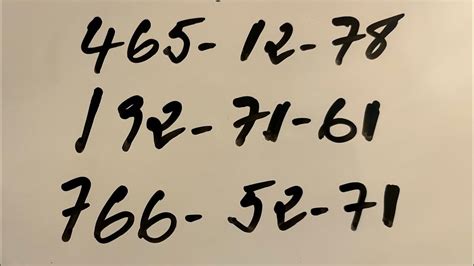 465-12-78
192-71-61
766-52-71